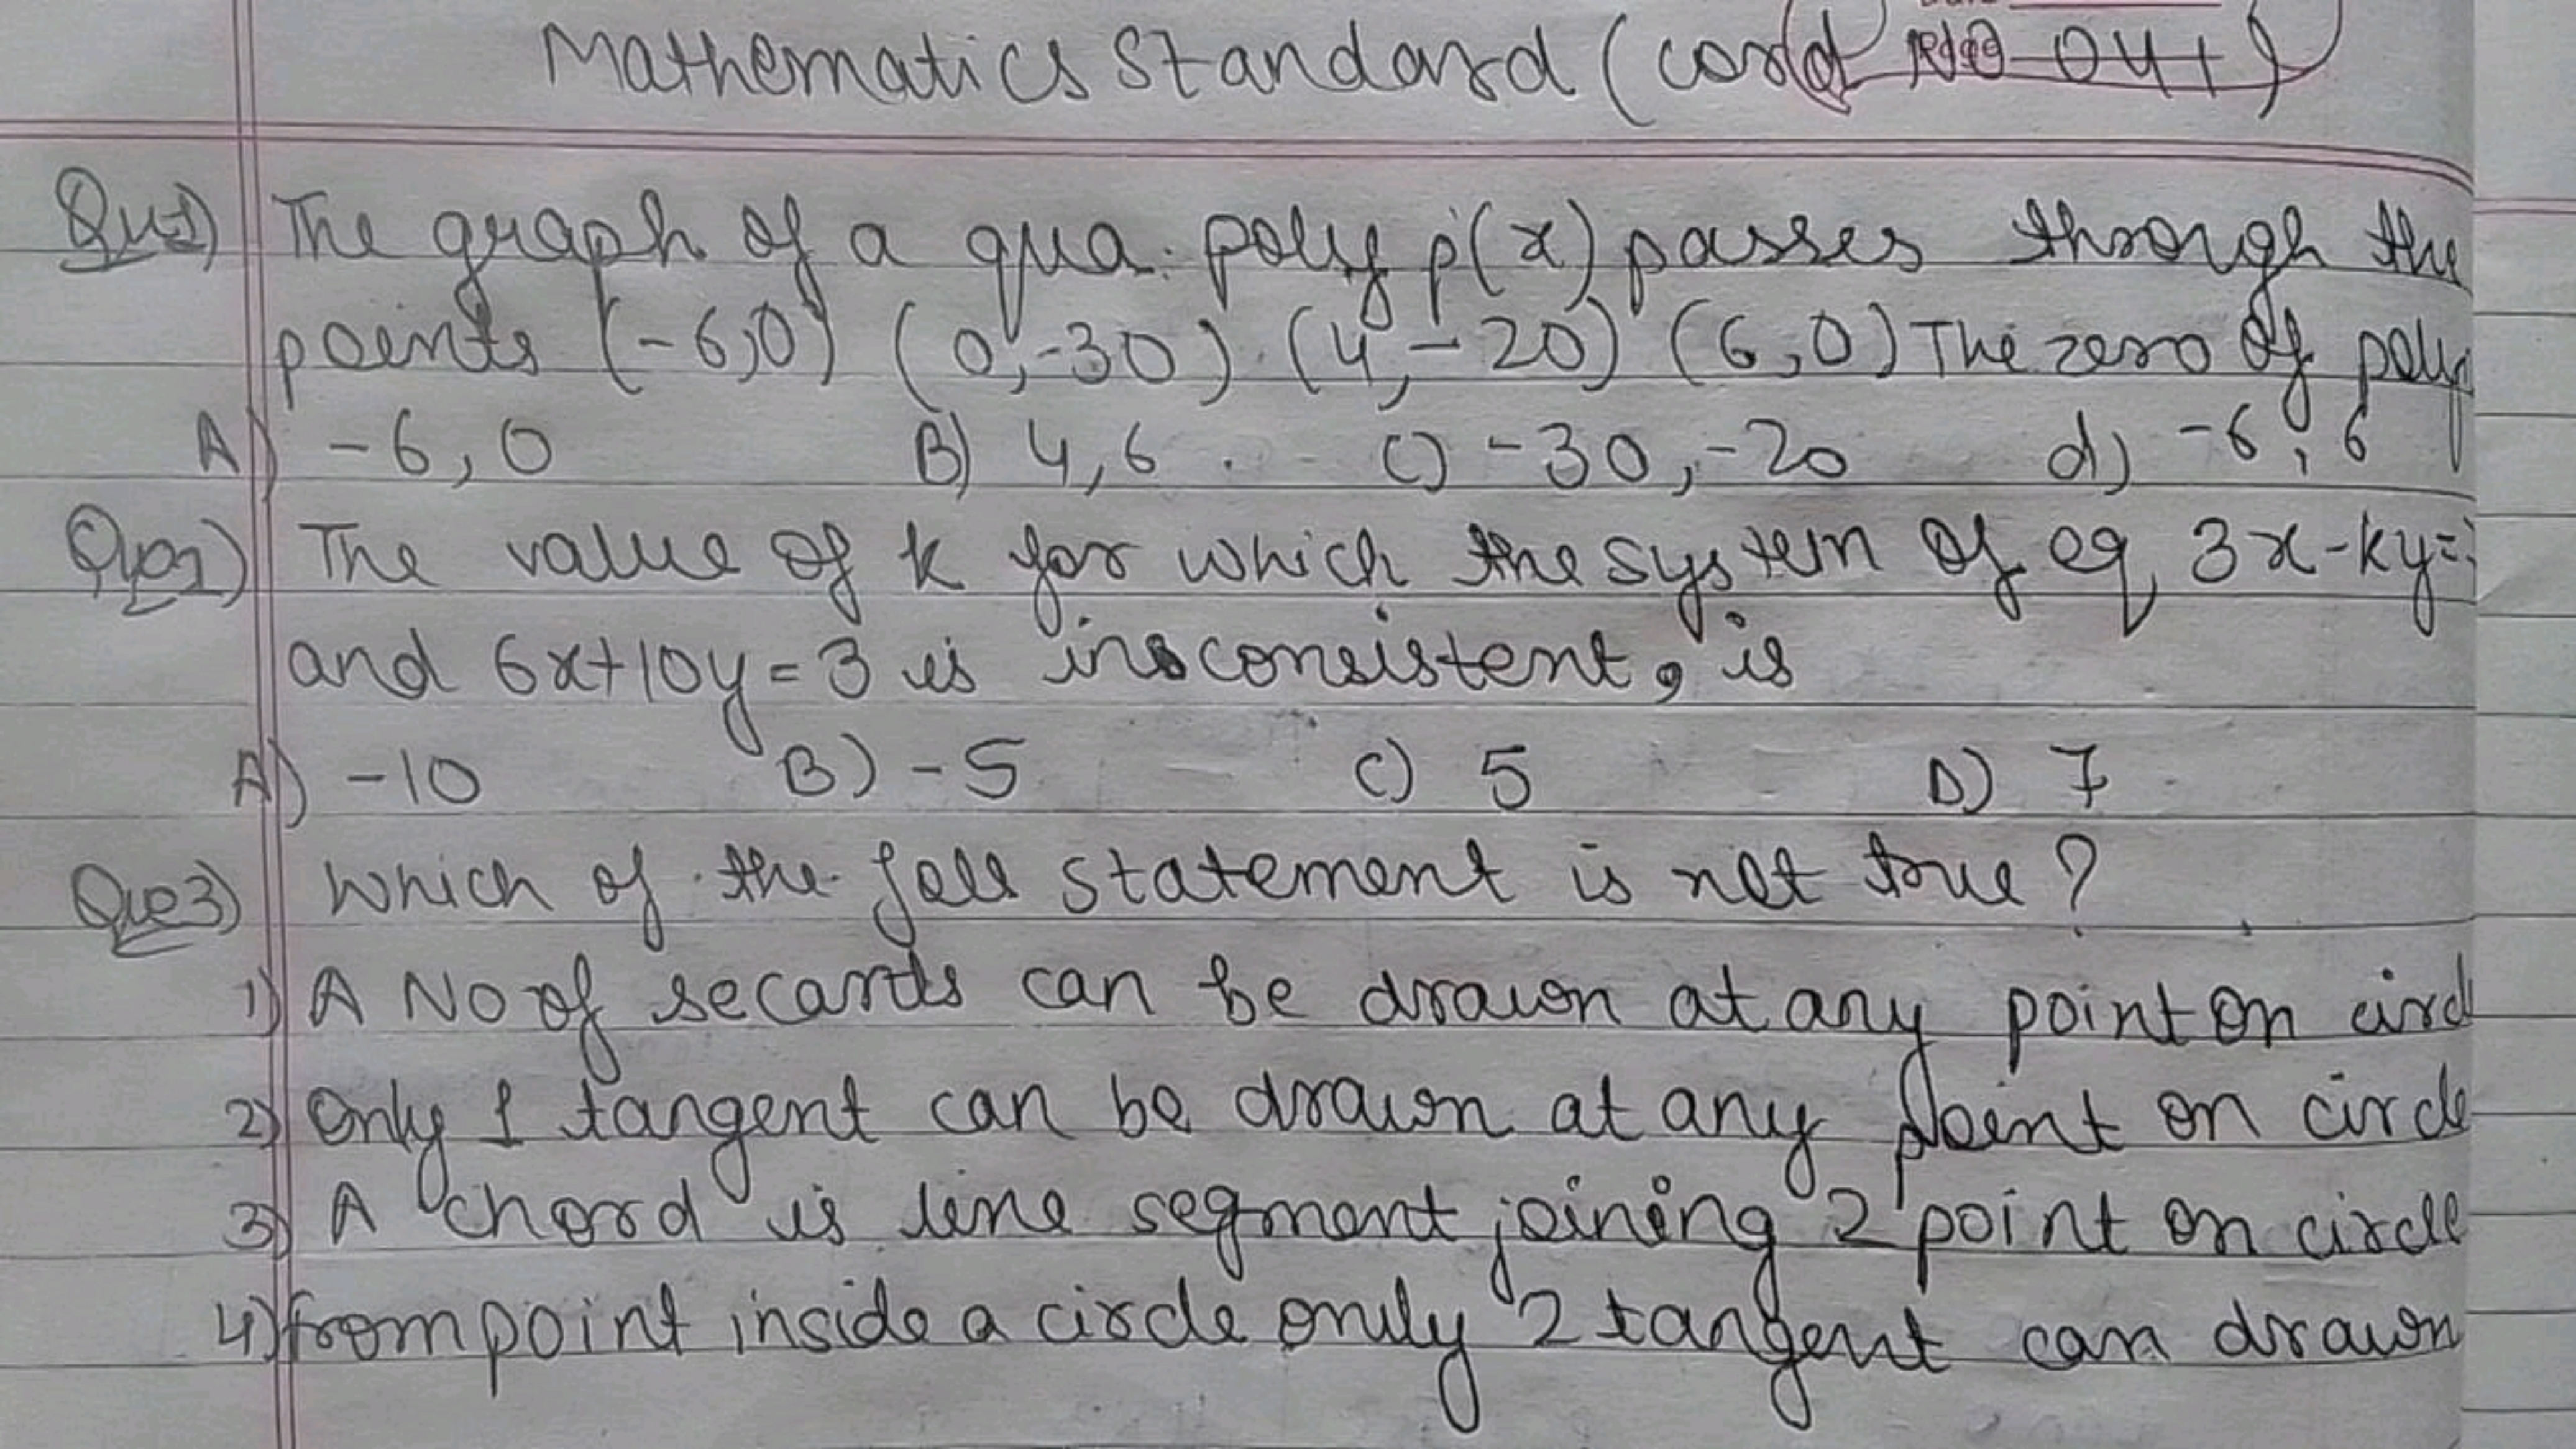 Mathematics Standard (cord NO 041)
Qu1) The graph of a qua. poly p(x) passes through the
points (-6,0) (0,-30) (4,-20) (6,0) The zero of poly
A) -6, 0 B) 4,6 C) -30,-20 d) -6, 6
Que2) The value of k for which the system of eq 3x-ky=
and 6x+10y=3 is inconsistent, is
A) -10 B) -5 C) 5 D) 7
Que3) Which of the foll statement is not true?
1) A No of secants can be drawn at any point on circl
2) Only 1 tangent can be drawn at any point on circle
3) A chord is line segment joining 2 point on circle
4) from point inside a circle only 2 tangent can drawn